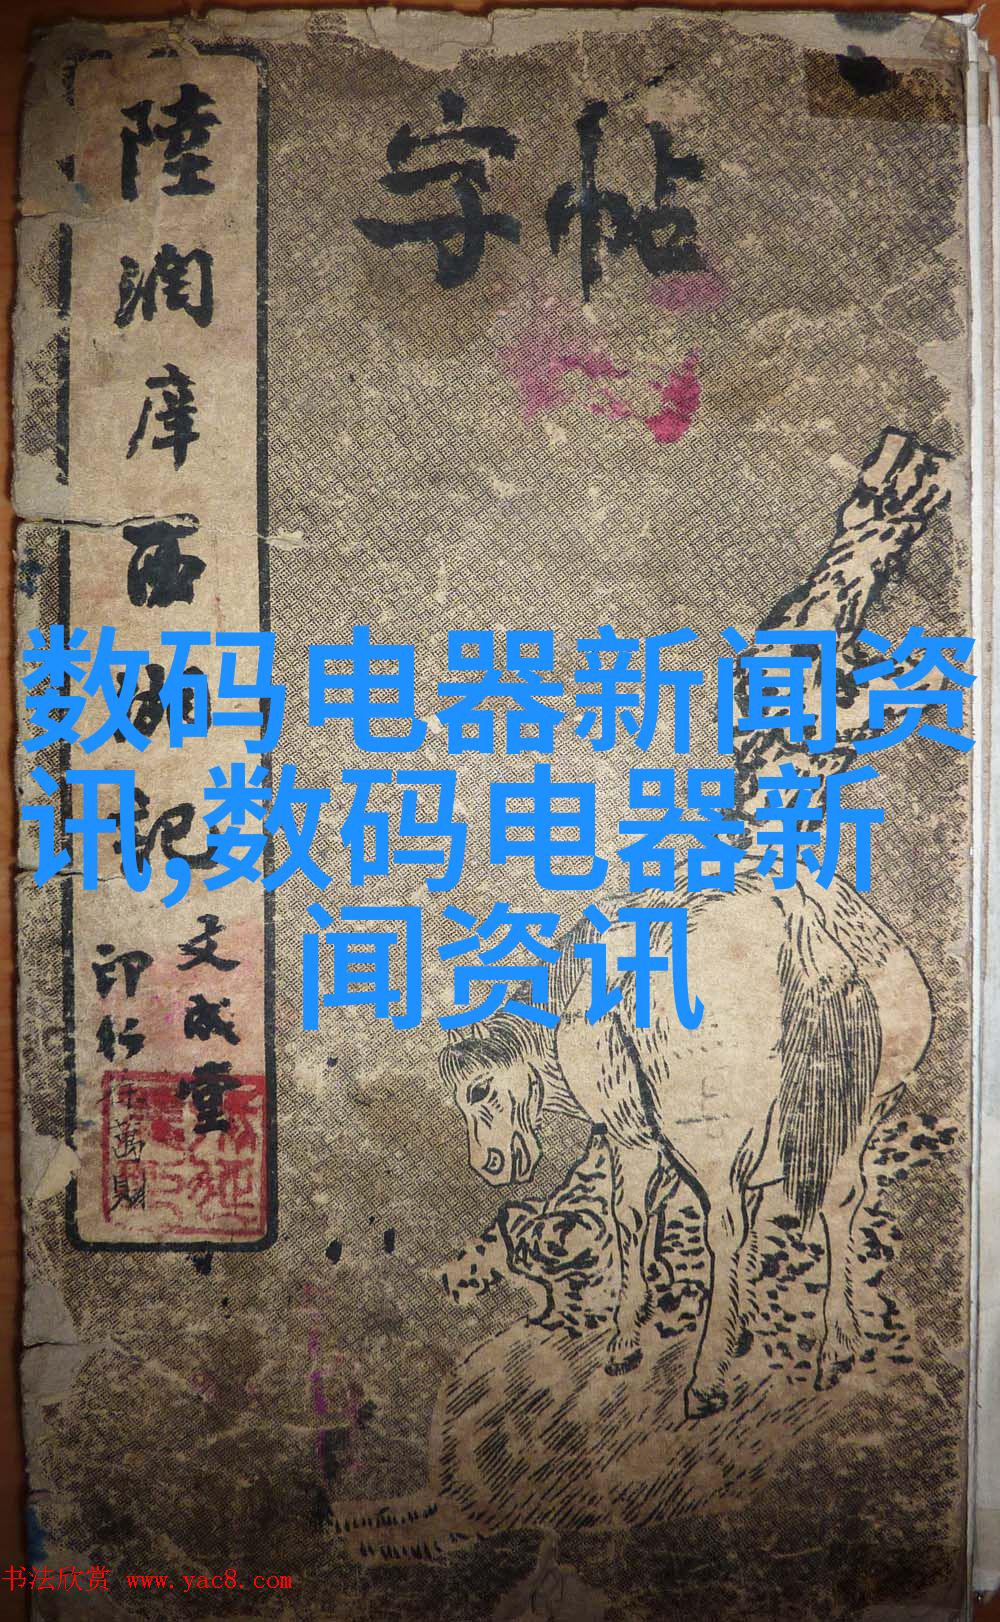 字帖
陸潤庠西湖記
文成堂
印行
数码电器新闻资
讯,数码电器新
闻资讯
书法欣赏 www.yac8.com